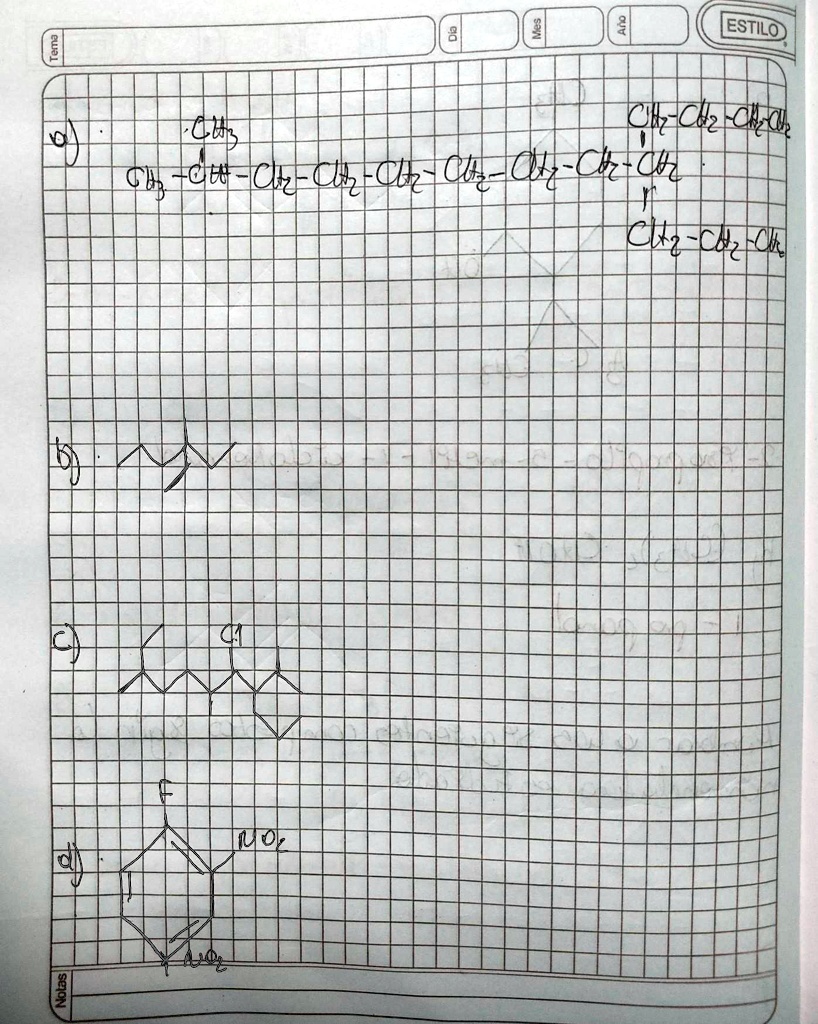 Tema
Dia
Mes
Año
ESTILO
a)
CH3
CH2-CH2-CH2-CH2
CH3-CH-CH2-CH2-CH2-CH2-CH2-CH2-CH2
CH2-CH2-CH3
b)
c)
Cl
F
d)
NO2
NO2
Notas